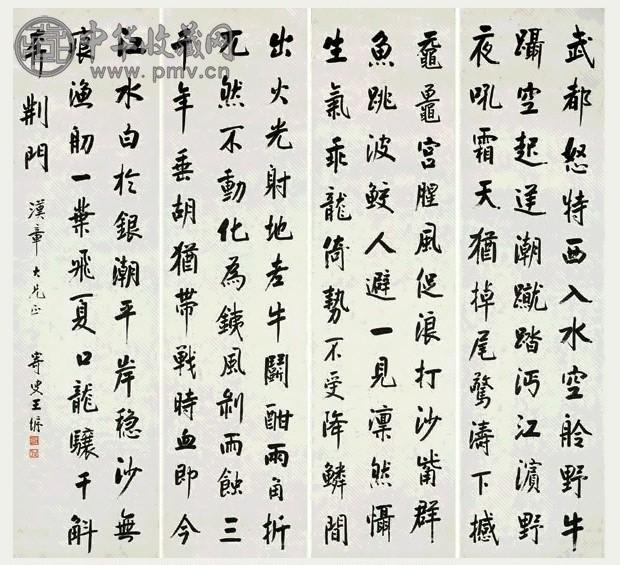 中华收藏网
www.pmv.cn
武都怒特西入水空舲野牛
躡空起逆潮蹴踏沔江濱野
夜吼霜天猶掉尾驚濤下撼
黿鼉宮腥風促浪打沙觜群
魚跳波鮫人避一見凜然懾
生氣乖龍倚勢不受降鱗間
出火光射地老牛鬭酣兩角折
兀然不動化為銕風剝雨蝕三
千年垂胡猶帶戰時血即今
江水白於銀潮平岸穩沙無
痕漁舠一葉飛夏口龍驤千斛
奔荊門
漢章大兄正 寄叟王